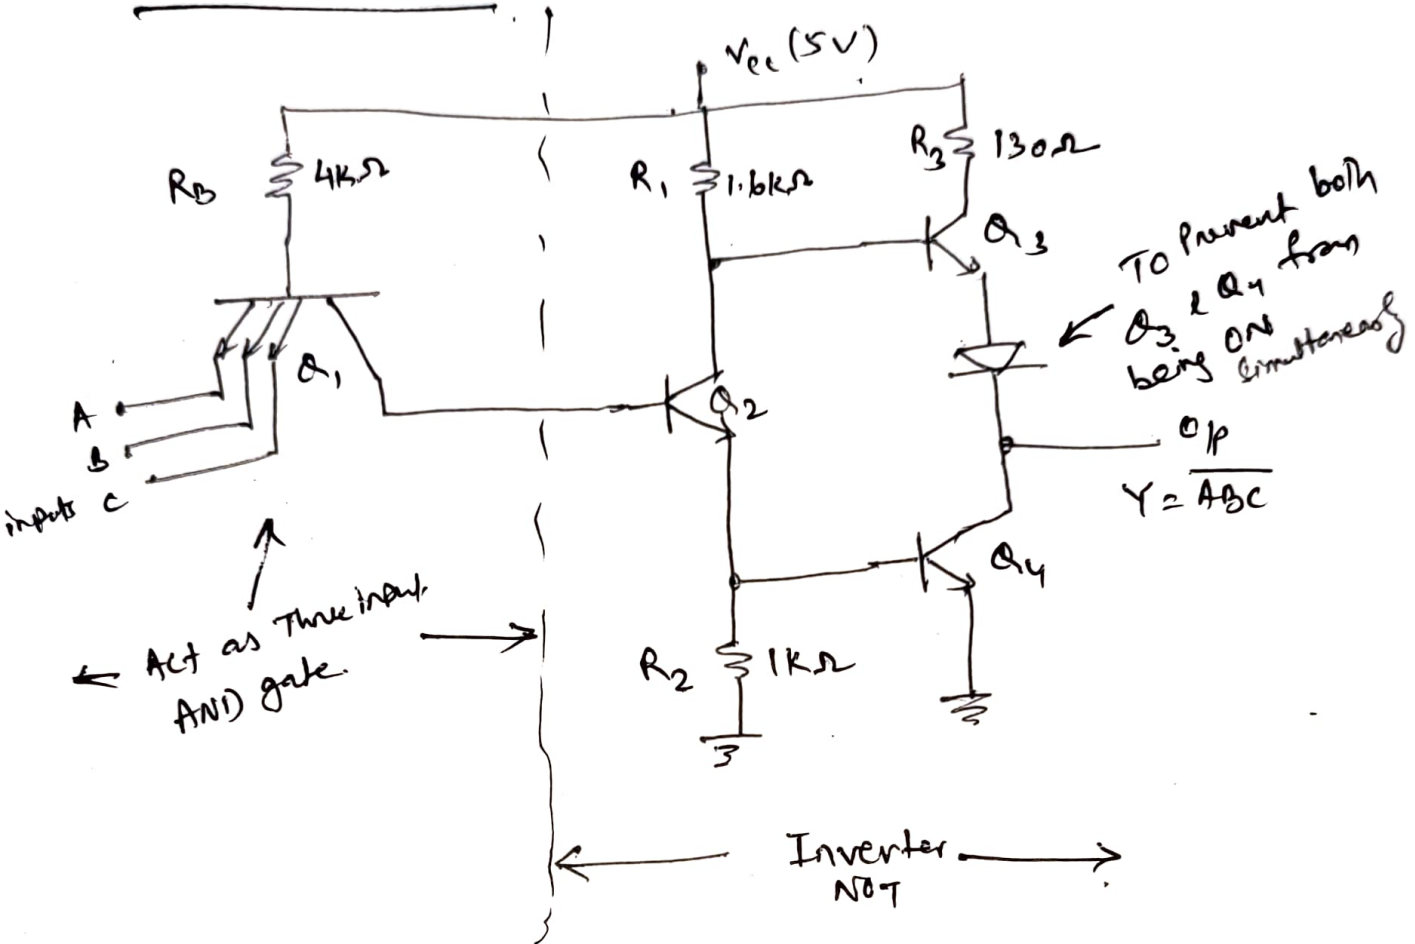 Vcc (5V)
RB 4KΩ
R1 1.6KΩ
R3 130Ω
Q3
TO Prevent both
Q3 & Q4 from
being ON
simultaneously
Q1
Q2
A
B
inputs C
O/p
Y = \overline{ABC}
Q4
Act as Three input
AND gate.
R2 1KΩ
Inverter
NOT